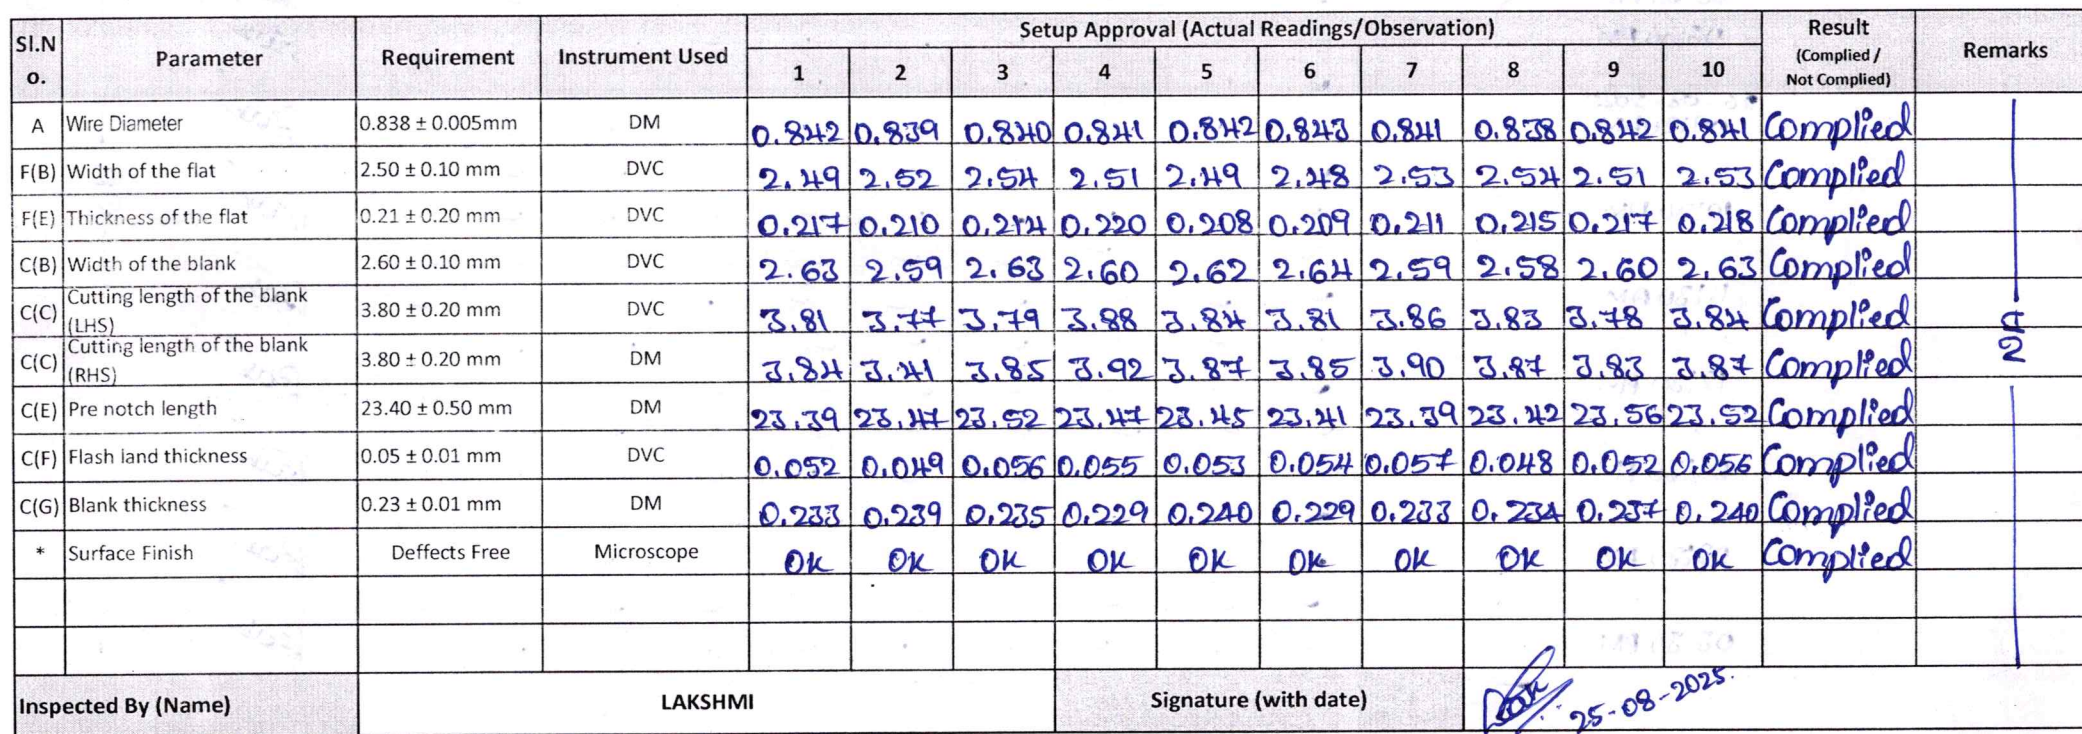 Sl.No. Parameter Requirement Instrument Used Setup Approval (Actual Readings/Observation) Result (Complied / Not Complied) Remarks
1 2 3 4 5 6 7 8 9 10
A Wire Diameter 0.838 ± 0.005mm DM 0.842 0.839 0.840 0.841 0.842 0.843 0.841 0.838 0.842 0.841 Complied
F(B) Width of the flat 2.50 ± 0.10 mm DVC 2.49 2.52 2.54 2.51 2.49 2.48 2.53 2.54 2.51 2.53 Complied
F(E) Thickness of the flat 0.21 ± 0.20 mm DVC 0.217 0.210 0.214 0.220 0.208 0.209 0.211 0.215 0.217 0.218 Complied
C(B) Width of the blank 2.60 ± 0.10 mm DVC 2.63 2.59 2.63 2.60 2.62 2.64 2.59 2.58 2.60 2.63 Complied
C(C) Cutting length of the blank (LHS) 3.80 ± 0.20 mm DVC 3.81 3.77 3.79 3.88 3.84 3.81 3.86 3.83 3.78 3.84 Complied
C(C) Cutting length of the blank (RHS) 3.80 ± 0.20 mm DM 3.84 3.41 3.85 3.92 3.87 3.85 3.90 3.87 3.83 3.87 Complied
C(E) Pre notch length 23.40 ± 0.50 mm DM 23.39 23.47 23.52 23.47 23.45 23.41 23.39 23.42 23.56 23.52 Complied
C(F) Flash land thickness 0.05 ± 0.01 mm DVC 0.052 0.049 0.056 0.055 0.053 0.054 0.057 0.048 0.052 0.056 Complied
C(G) Blank thickness 0.23 ± 0.01 mm DM 0.233 0.239 0.235 0.229 0.240 0.229 0.233 0.234 0.237 0.240 Complied
* Surface Finish Deffects Free Microscope OK OK OK OK OK OK OK OK OK OK Complied
Inspected By (Name) LAKSHMI Signature (with date) 25-08-2025.